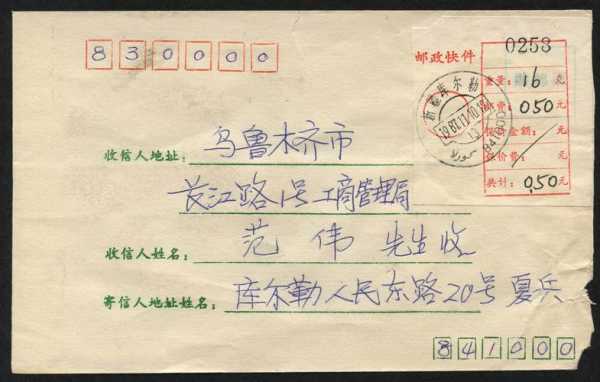 830000
邮政快件
0253
重量: 16 克
邮费: 050 元
保价金额: 元
保价费: 元
共计: 0.50 元
新疆库尔勒
841000
收信人地址: 乌鲁木齐市
长江路1号工商管理局
收信人姓名: 范伟 先生收
寄信人地址姓名: 库尔勒人民东路20号 夏兵
841000